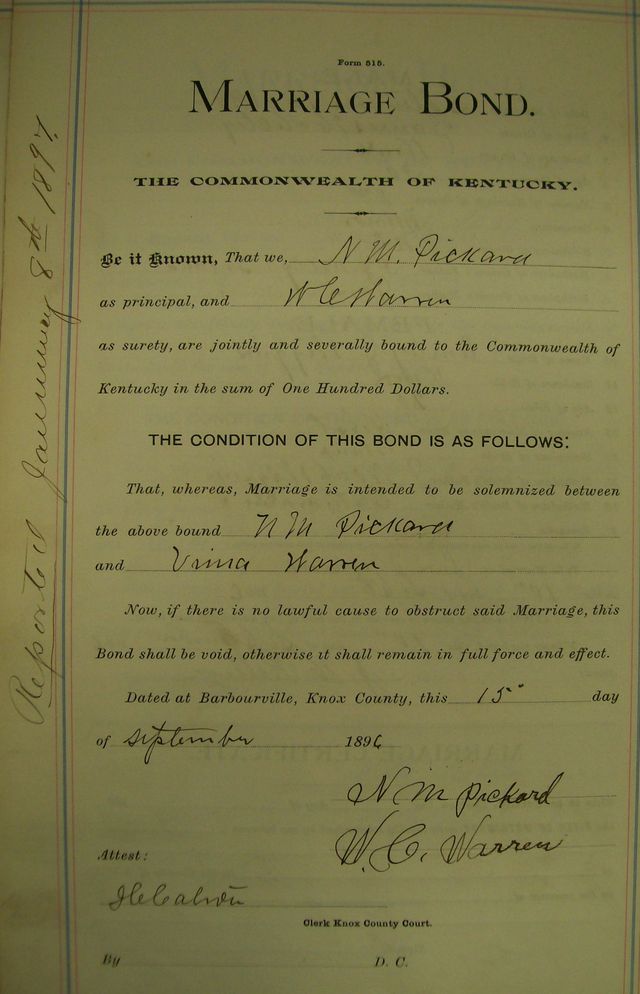 Form 515.
MARRIAGE BOND.
THE COMMONWEALTH OF KENTUCKY.
Be it Known, That we, N M. Pickard
as principal, and W C Warren
as surety, are jointly and severally bound to the Commonwealth of
Kentucky in the sum of One Hundred Dollars.
THE CONDITION OF THIS BOND IS AS FOLLOWS:
That, whereas, Marriage is intended to be solemnized between
the above bound N M Pickard
and Warren
Now, if there is no lawful cause to obstruct said Marriage, this
Bond shall be void, otherwise it shall remain in full force and effect.
Dated at Barbourville, Knox County, this 15" day
of September 1896
N M Pickard
W. C. Warren
Attest:
Clerk Knox County Court.
By D. C.
Reported January 8th 1897.